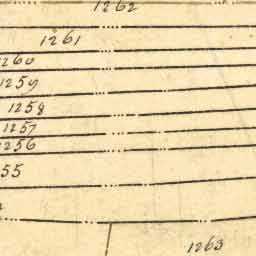 1262
1261
1260
1259
1258
1257
1256
55
1263